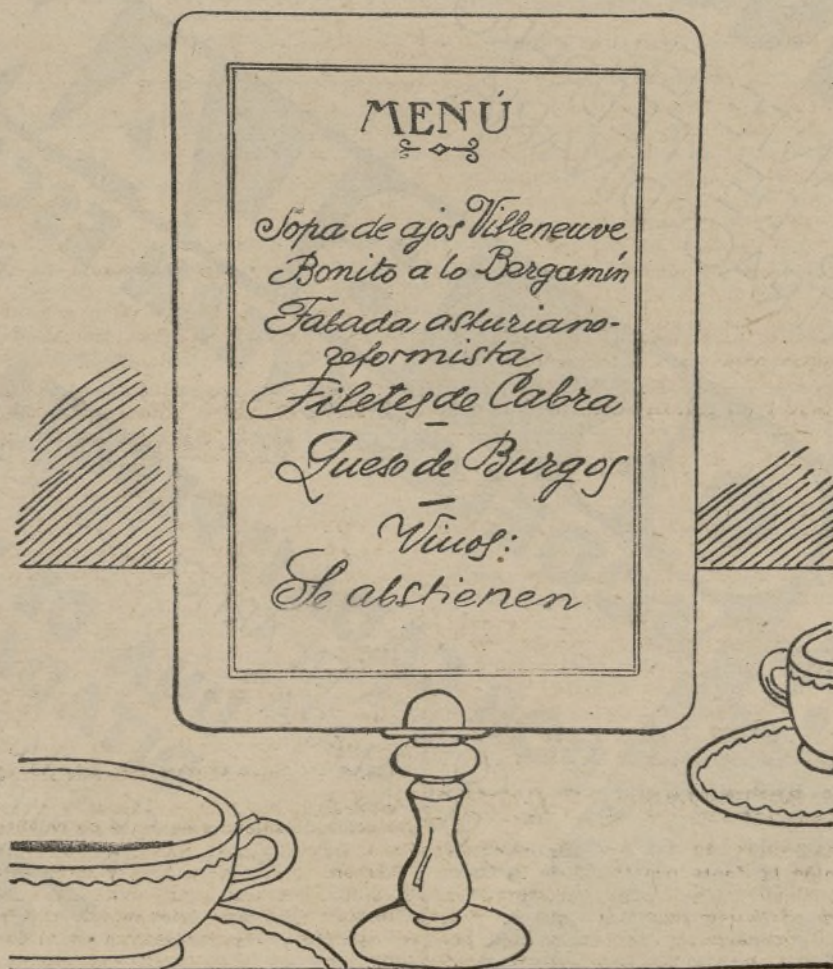 MENÚ
Sopa de ajos Villeneuve
Bonito a lo Bergamín
Fabada asturiano-
reformista
Filetes de Cabra
—
Queso de Burgos
—
Vinos:
Se abstienen